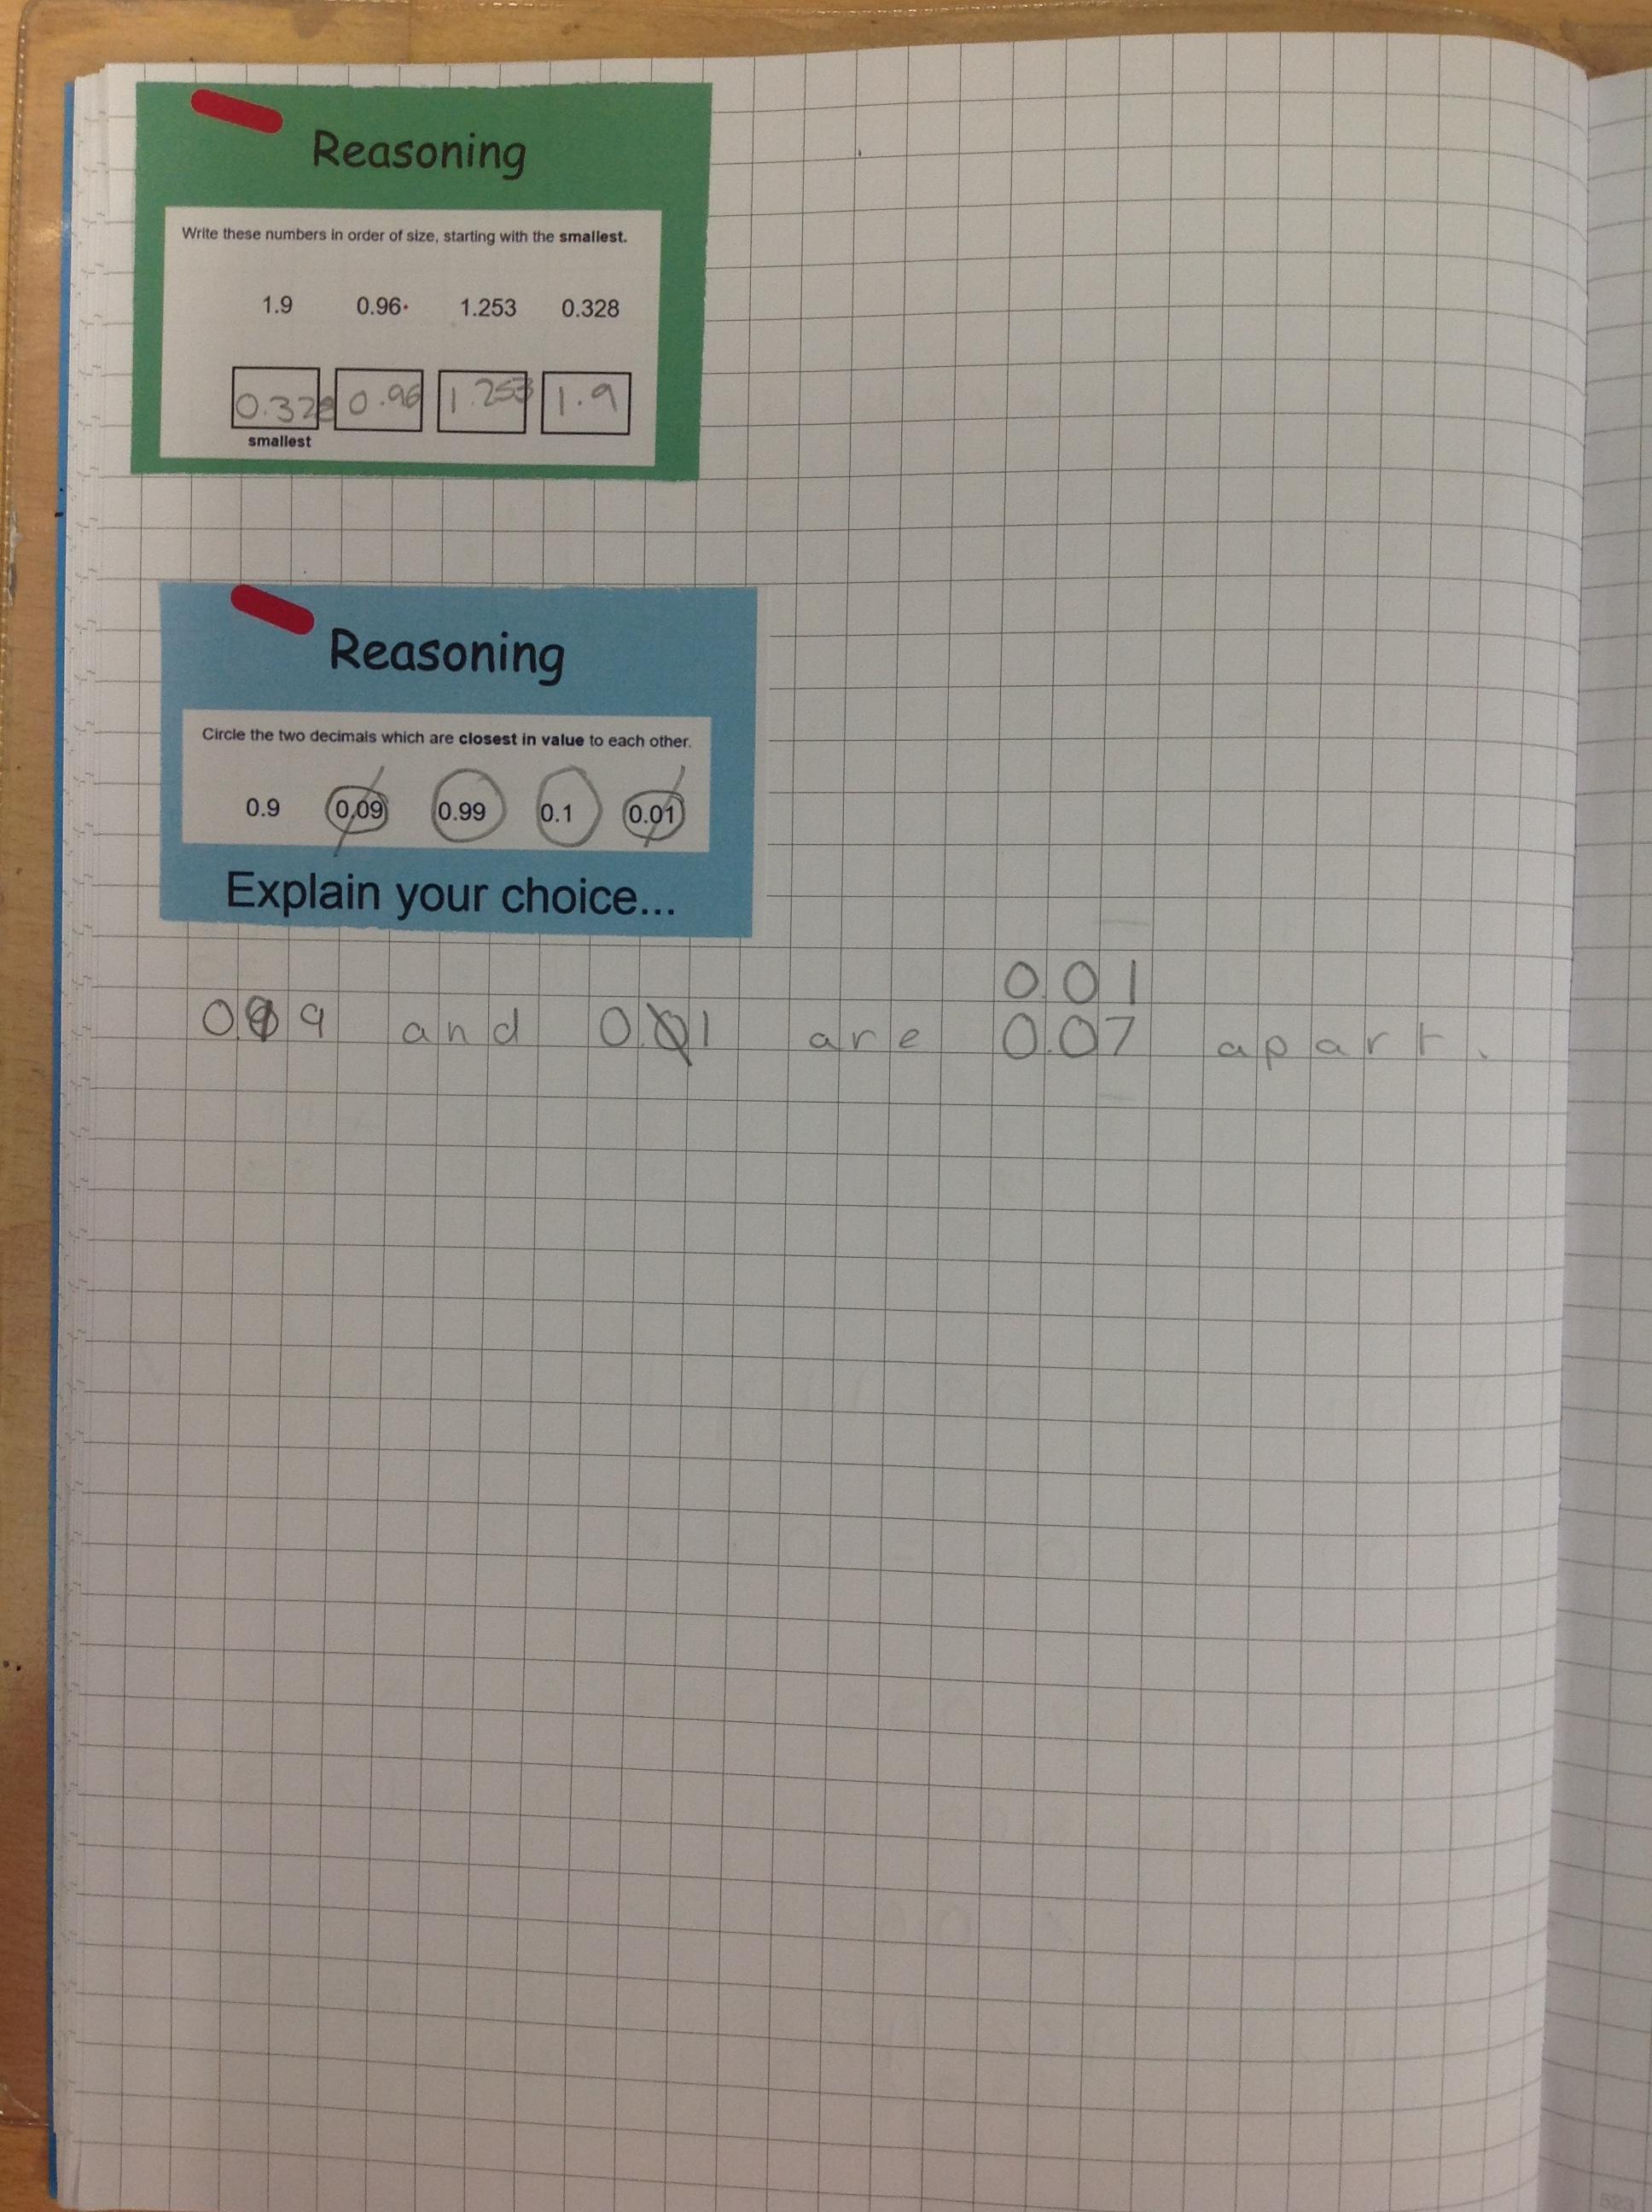 Reasoning
Write these numbers in order of size, starting with the smallest.
1.9 0.96 1.253 0.328
0.328 0.96 1.253 1.9
smallest
Reasoning
Circle the two decimals which are closest in value to each other.
0.9 0.09 0.99 0.1 0.01
Explain your choice...
0.01
0.99 and 0.01 are 0.07 apart.